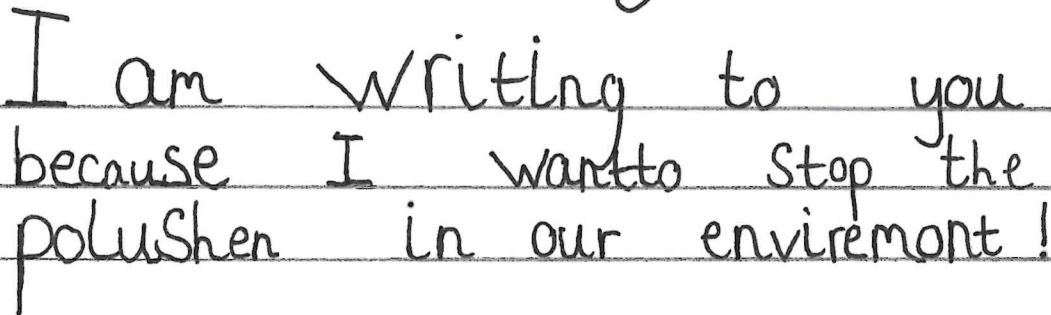 I am writing to you
because I wantto stop the
polushen in our enviremont!